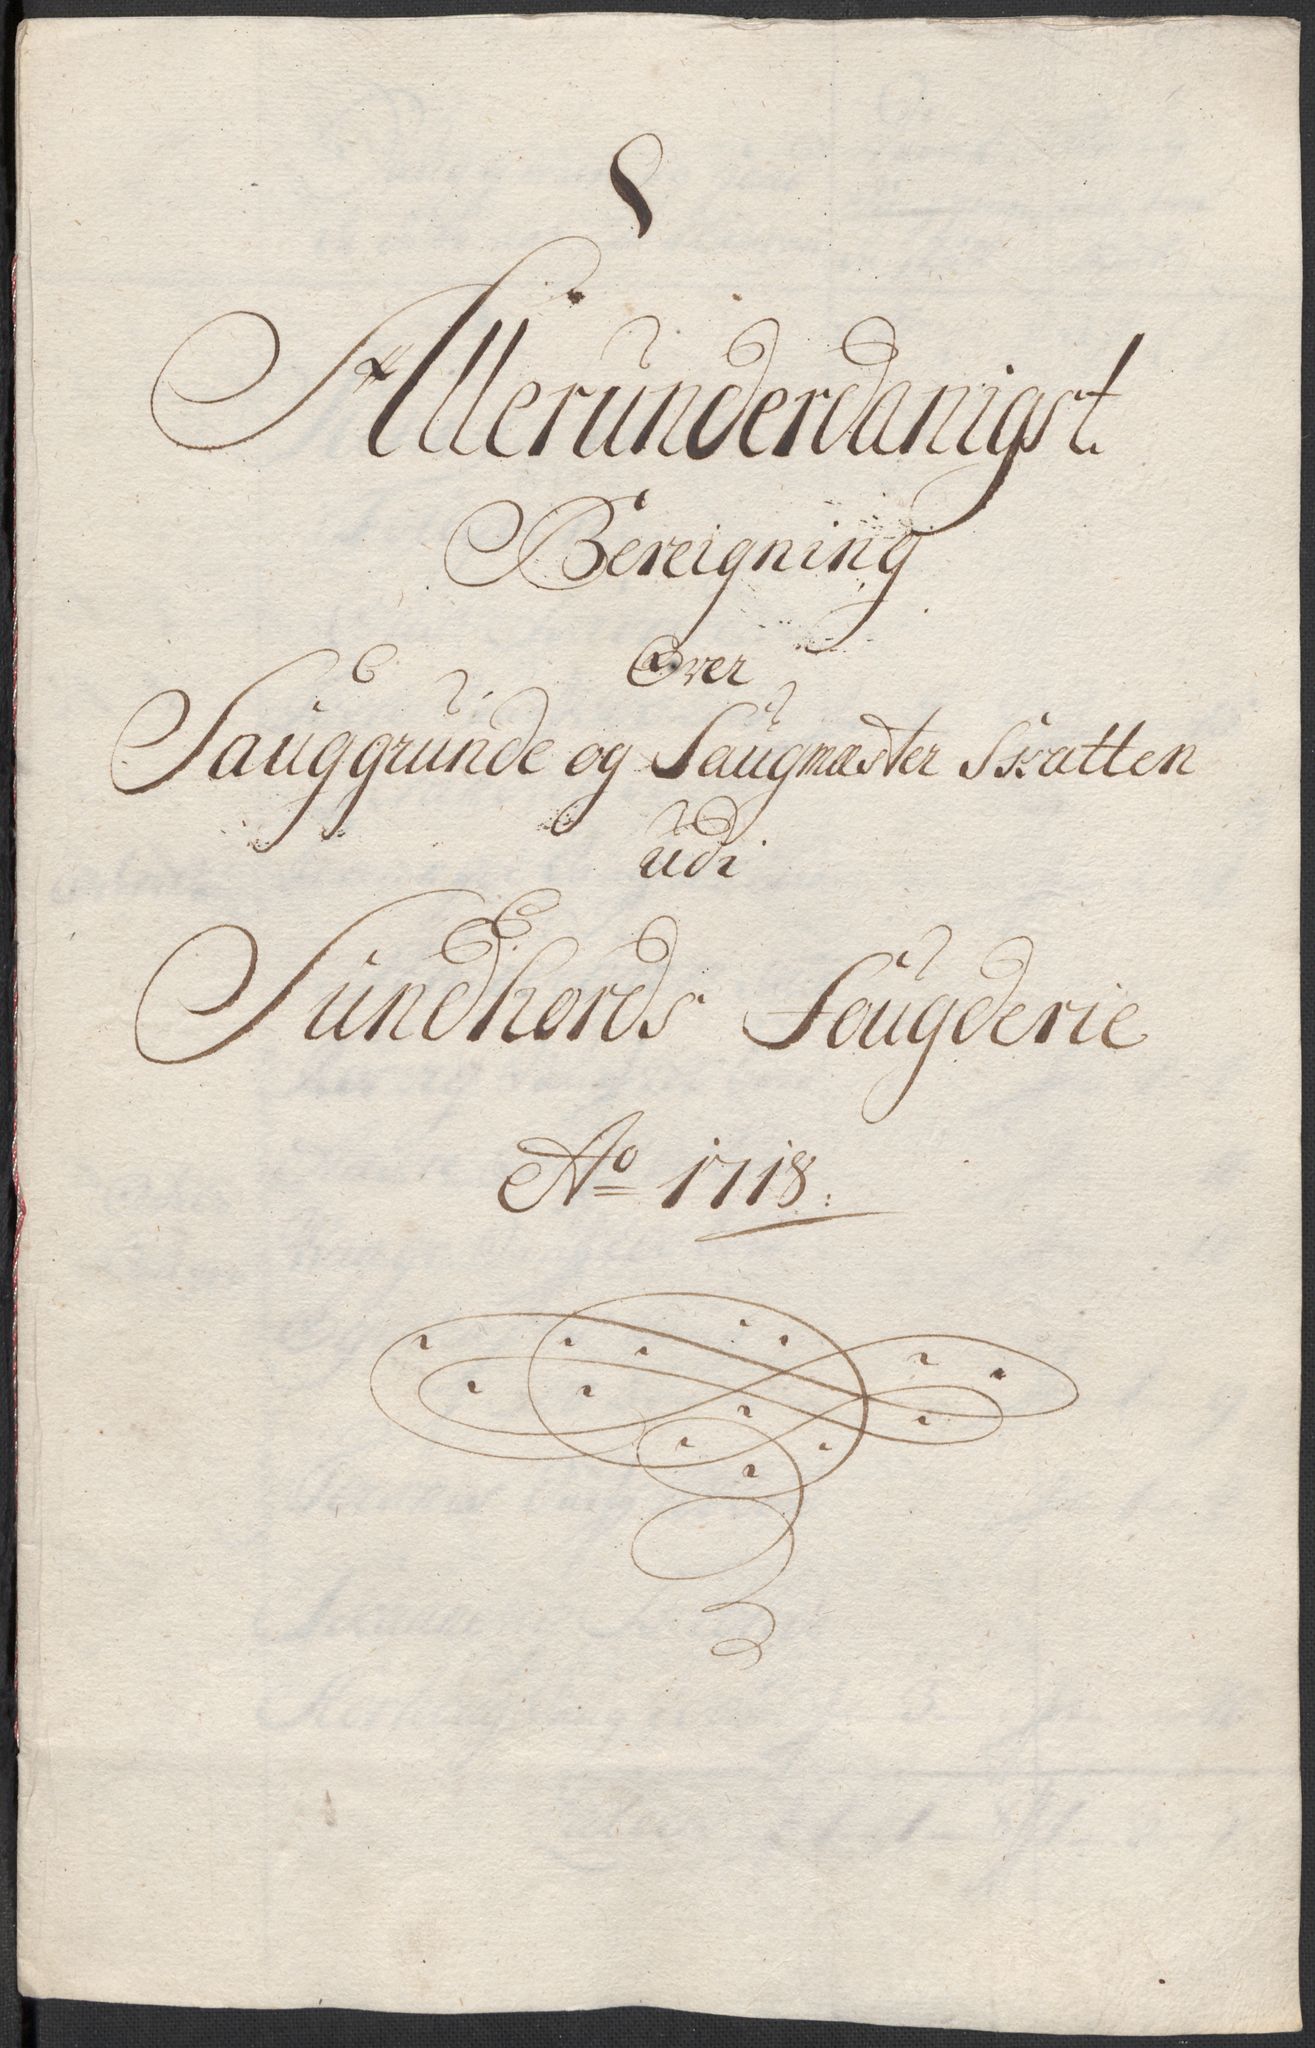 Allerunderdanigst
Bereigning
Over
Sauggrunde og Saugmæster Skatten
udi
Sundhords Fougderie
Ao 1718.